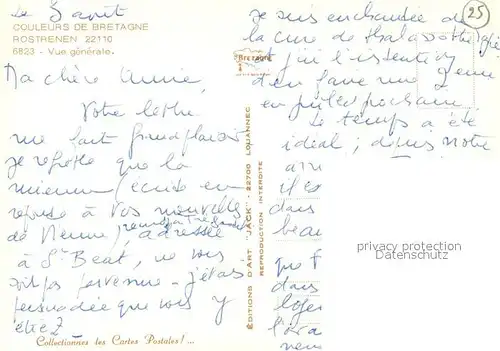 Le 3 août
COULEURS DE BRETAGNE
ROSTRENEN 22110
6823 - Vue générale.
Ma chère Annie,
Votre lettre
me fait grand plaisir
je regrette que la
mienne (écrite en
réponse à vos nouvelles
de Vienne)
adressée
à St Béat, ne vous
soit pas parvenue - j'étais
persuadée que vous y
étiez
Collectionnez les Cartes Postales ! ...
EDITIONS D'ART "JACK" - 22700 LOUANNEC
REPRODUCTION INTERDITE
Bretagne
25
je suis enchantée de
la cure de thalassothérapie
et j'ai l'intention
d'en faire une 2ème
en juillet prochain.
Le temps a été
idéal ; depuis notre
arri
il es
dans
beau
que
dans
loge
l'ora
privacy protection
Datenschutz